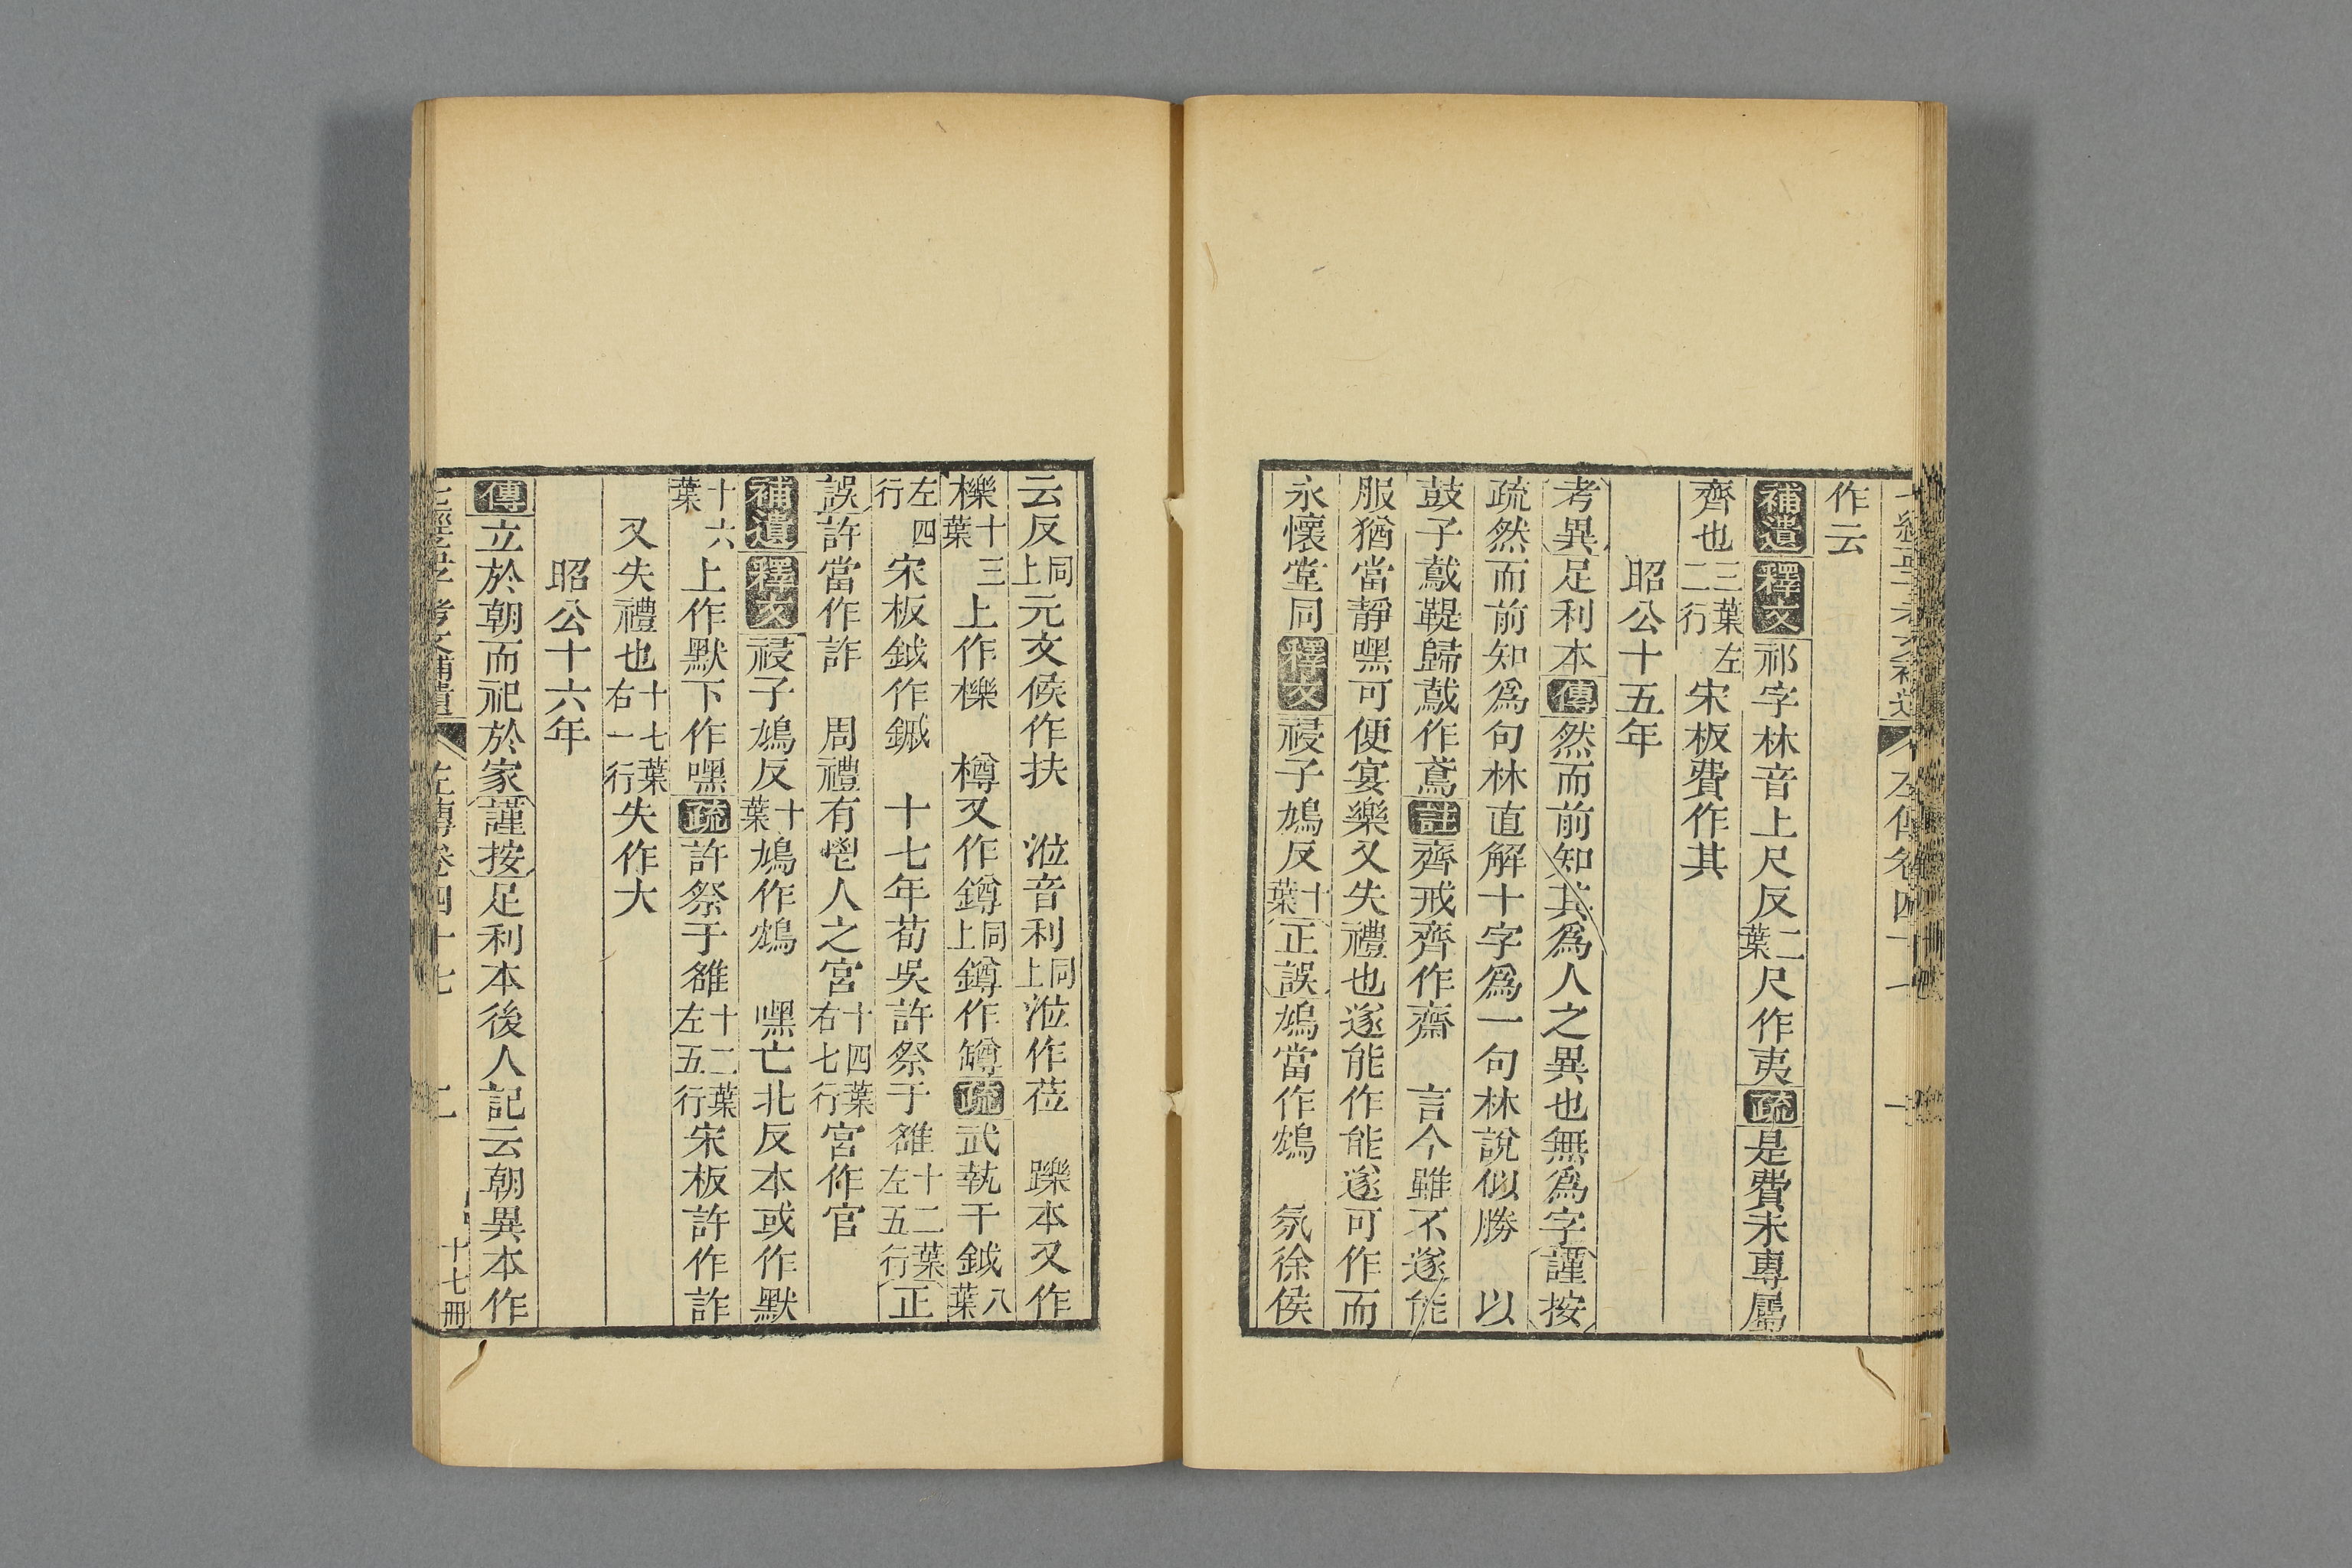 作云
補遺釋文祁字林音上尺反二葉尺作夷疏是費未專屬
齊也三葉左二行宋板費作其
昭公十五年
考異足利本傳然而前知其爲人之異也無爲字謹按
疏然而前知爲句林直解十字爲一句林說似勝 以
鼓子鳶鞮歸鳶作鳶註齊戒齊作齋 言今雖不遂能
服猶當靜嘿可便宴樂又失禮也遂能作能遂可作而
永懷堂同釋文祲子鴆反十葉正誤鴆當作鴆 氛徐侯
云反同上元文侯作扶 涖音利同上涖作莅 躒本又作
櫟十三葉上作櫟 樽又作鐏同上鐏作罇疏武執干鉞八葉
左四行宋板鉞作鏚 十七年荀吳許祭于雒十二葉左五行正
誤許當作詐 周禮有鬯人之宮十四葉右七行宮作官
補遺釋文祲子鴆反十葉鴆作鴆 嘿亡北反本或作默
十六葉上作默下作嘿疏許祭于雒十二葉左五行宋板許作詐
又失禮也十七葉右一行失作大
昭公十六年
傳立於朝而祀於家謹按足利本後人記云朝異本作
考文補遺 左傳卷四十七 二 十七冊